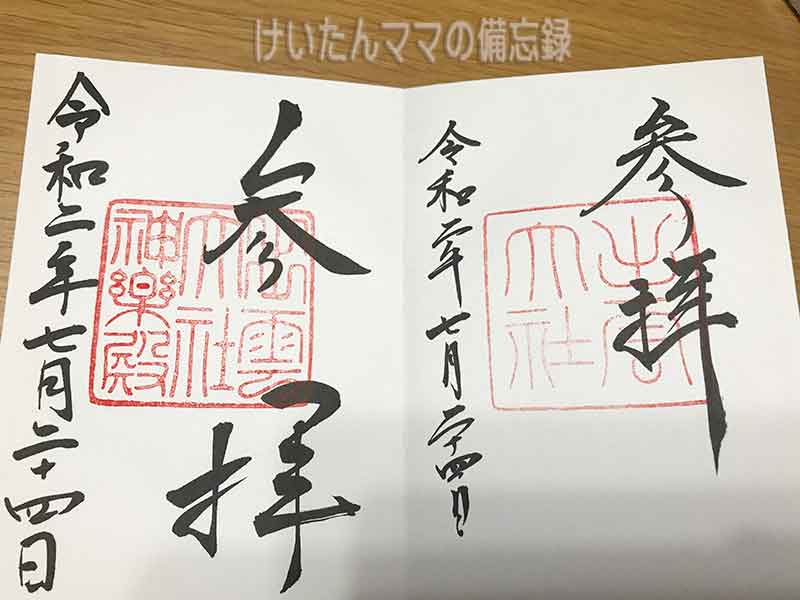 けいたんママの備忘録
参拝
出雲
大社
令和二年七月二十四日
参拝
出雲
大社
神楽殿
令和二年七月二十四日